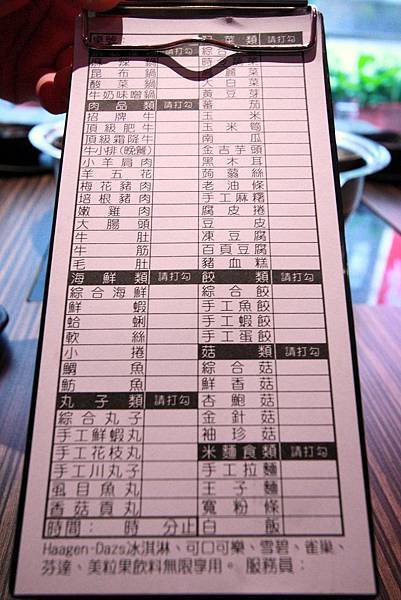 請打勾
菜類 請打勾
昆布鍋
酸菜鍋
大白菜
牛奶味噌鍋
黃豆芽
肉品類 請打勾
蕃茄
招牌牛
玉米
頂級肥牛
玉米筍
頂級霜降牛
南瓜
牛小排(晚餐)
金吉芋頭
小羊肩肉
黑木耳
羊五花
蒟蒻絲
梅花豬肉
老油條
培根豬肉
手工麻糬
嫩雞肉
腐皮捲
大腸頭
豆皮
牛肚
凍豆腐
牛筋
百頁豆腐
毛肚
豬血糕
海鮮類 請打勾
餃類 請打勾
綜合海鮮
綜合餃
鮮蝦
手工魚餃
蛤蜊
手工蝦餃
軟絲
手工蛋餃
小捲
菇類 請打勾
鯛魚
綜合菇
魴魚
鮮香菇
丸子類 請打勾
杏鮑菇
綜合丸子
金針菇
手工鮮蝦丸
袖珍菇
手工花枝丸
米麵食類 請打勾
手工川丸子
手工拉麵
虱目魚丸
王子麵
香菇貢丸
寬粉條
時間： 時 分止
白飯
Haagen-Dazs冰淇淋、可口可樂、雪碧、雀巢、
芬達、美粒果飲料無限享用。 服務員：